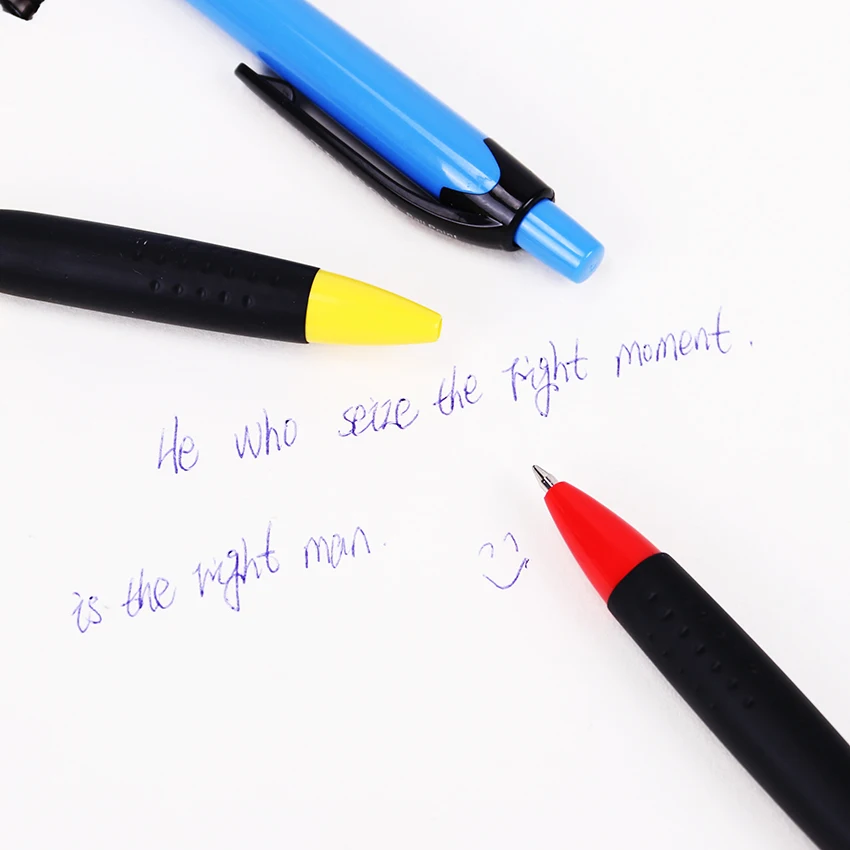 He who seize the right moment.
is the right man.